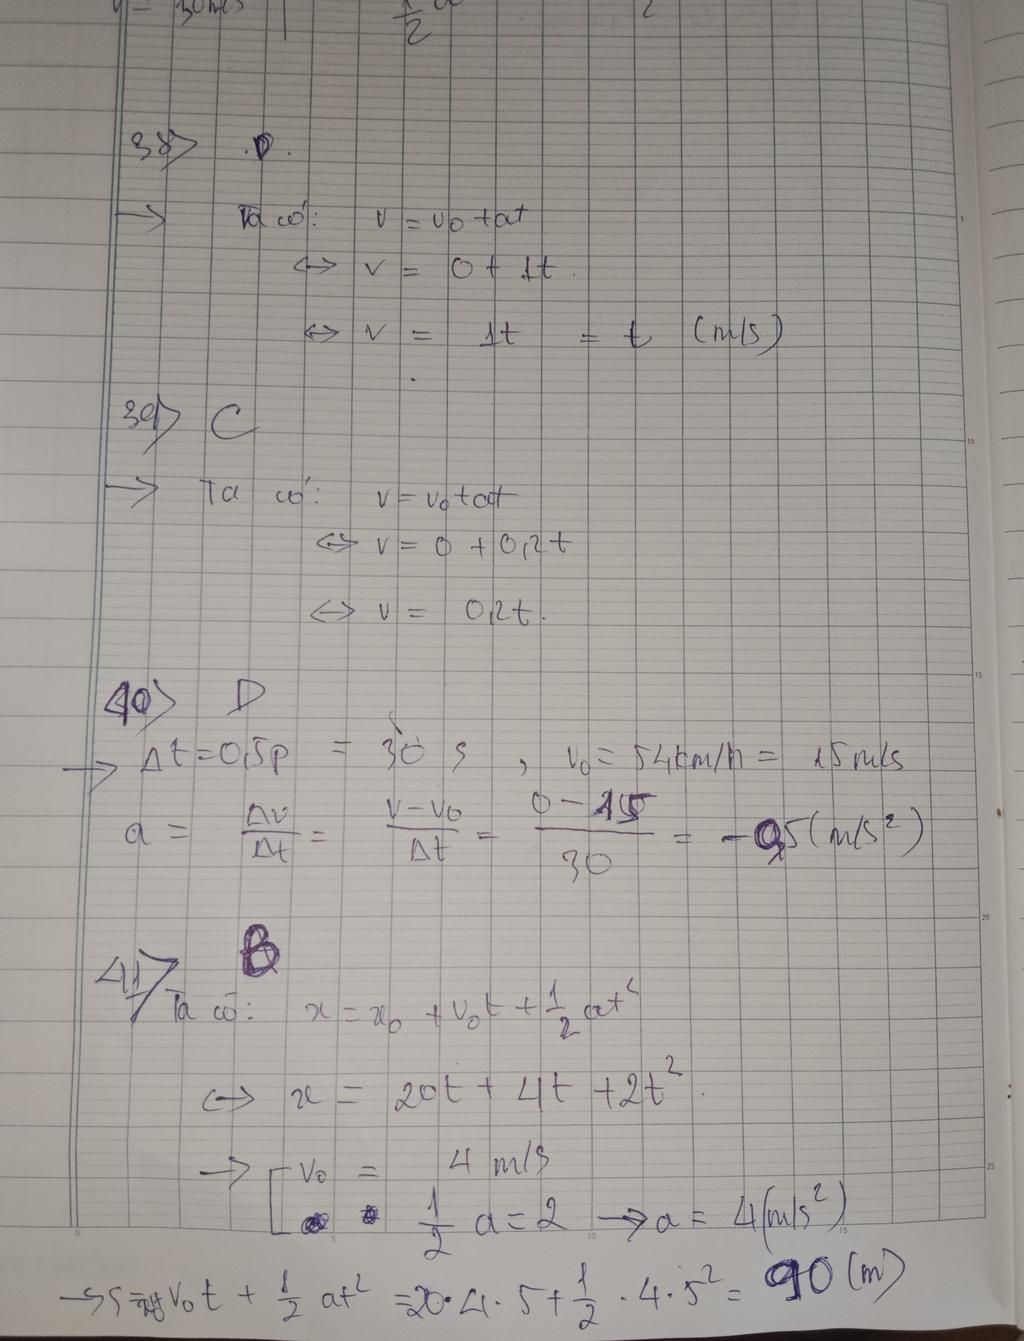 v = 30 m/s
1/2 a
2
38> D.
→ Ta có: v = v₀ + at
↔ v = 0 + 1t.
↔ v = 1t = t (m/s)
39> C
→ Ta có: v = v₀ + at
↔ v = 0 + 0,2t
↔ v = 0,2t.
40> D
→ Δt = 0,5p = 30 s , v₀ = 54km/h = 15 m/s
a = Δv/Δt = (v – v₀)/Δt = (0 – 15)/30 = -0,5 (m/s²)
41> B
Ta có: x = x₀ + v₀t + 1/2 at²
↔ x = 20t + 4t + 2t².
→ [ v₀ = 4 m/s
1/2 a = 2 → a = 4(m/s²)
→ S = v₀t + 1/2 at² = 20·4·5 + 1/2 · 4 · 5² = 90 (m)